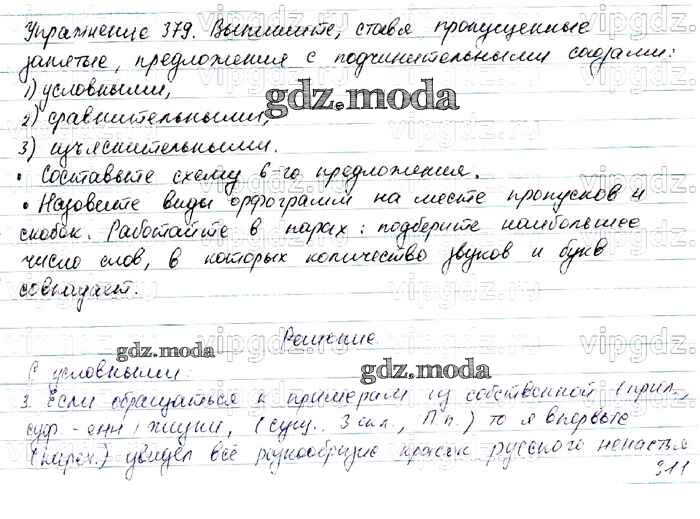 Упражнение 379. Выпишите, ставя пропущенные
запятые, предложения с подчинительными союзами:
1) условными,
2) сравнительными,
3) изъяснительными.
• Составьте схему 6-го предложения.
• Назовите виды орфограмм на месте пропусков и
скобок. Работайте в парах: подберите наибольшее
число слов, в которых количество звуков и букв
совпадает.
Решение
С условными:
3. Если обращаться к примерам из собственной (прил.,
суф -енн) жизни, (сущ., 3 скл., П.п.) то я впервые
(нареч.) увидел всё разнообразие красок русского ненастья
311
gdz.moda
gdz.moda
gdz.moda
vipgdz.ru